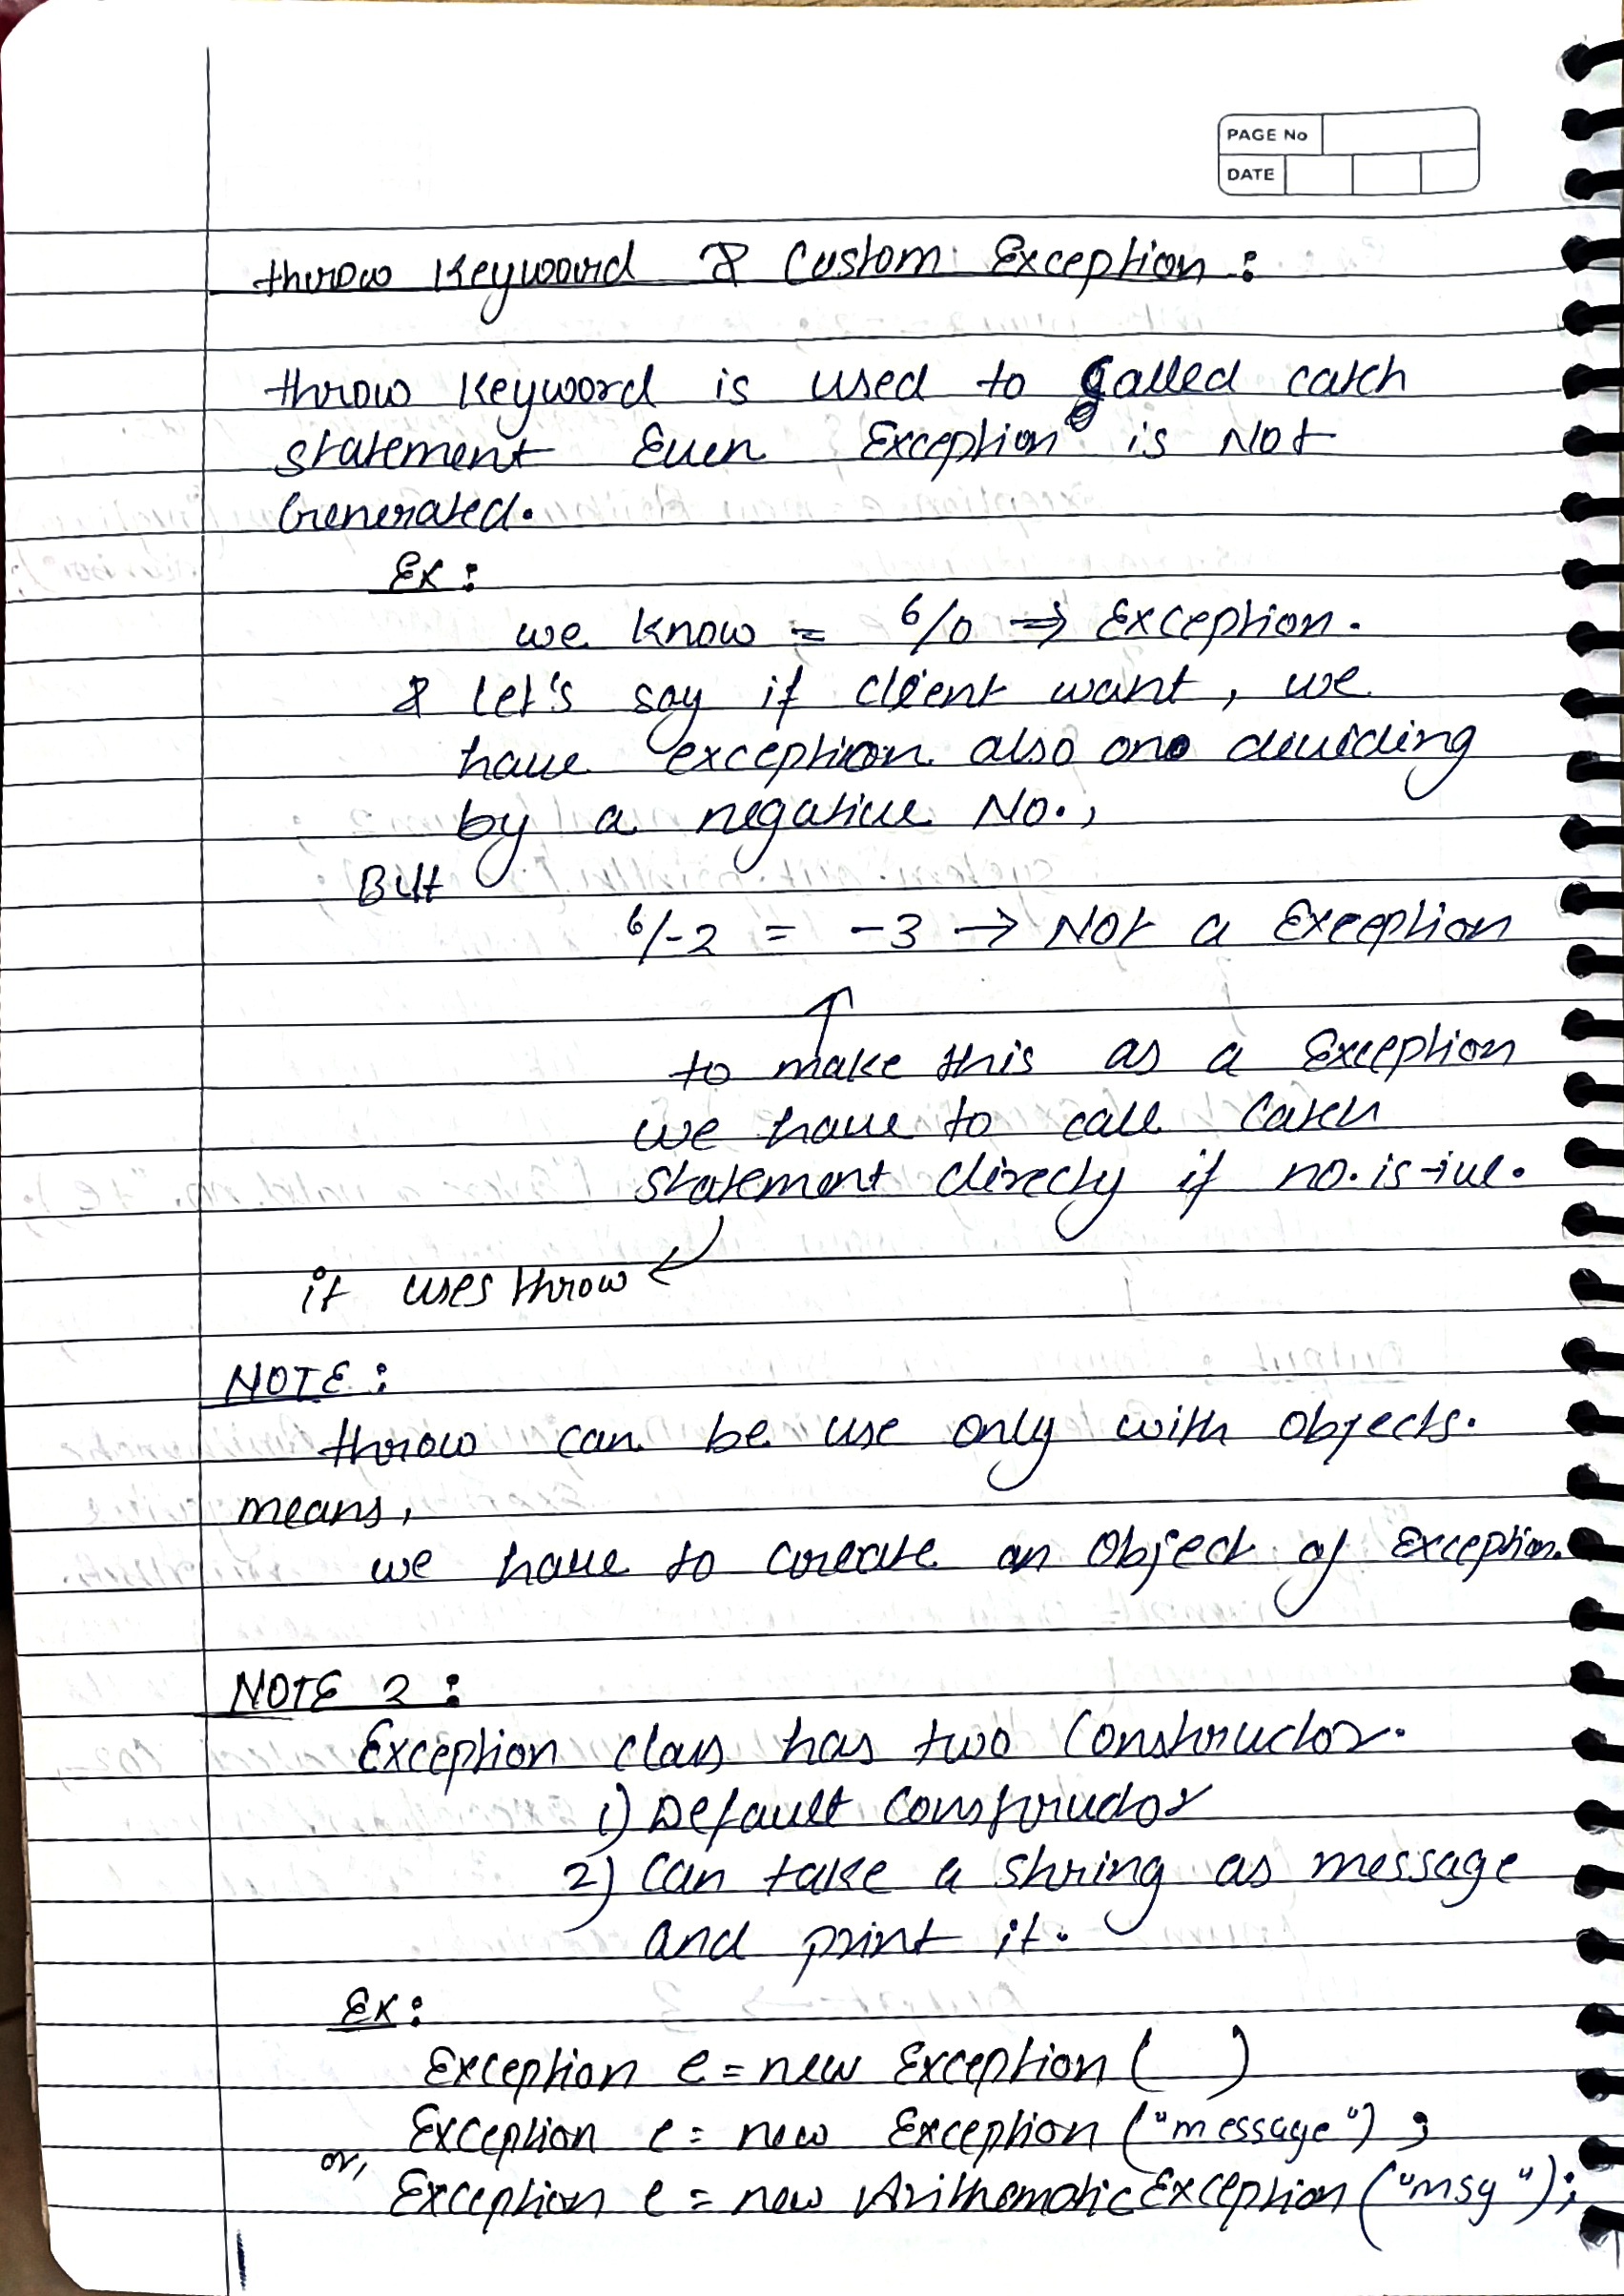 PAGE No
DATE
throw Keyword & Custom Exception :
throw Keyword is used to called catch
statement Even Exception is Not
Generated.
Ex :
we know = 6/0 => Exception.
& let's say if client want, we
have exception also ono dividing
by a negative No.,
But
6/-2 = -3 → Not a Exception
to make this as a Exception
we have to call Catch
statement direcly if no. is -ive.
it uses throw
NOTE :
throw can be use only with objects.
means,
we have to create an Object of Exception.
NOTE 2 :
Exception class has two Constructor.
1) Default Constructor
2) Can take a string as message
and print it.
Ex :
Exception e = new Exception ( )
Exception e = new Exception ("message") ;
or, Exception e = new ArithematicException ("msg");